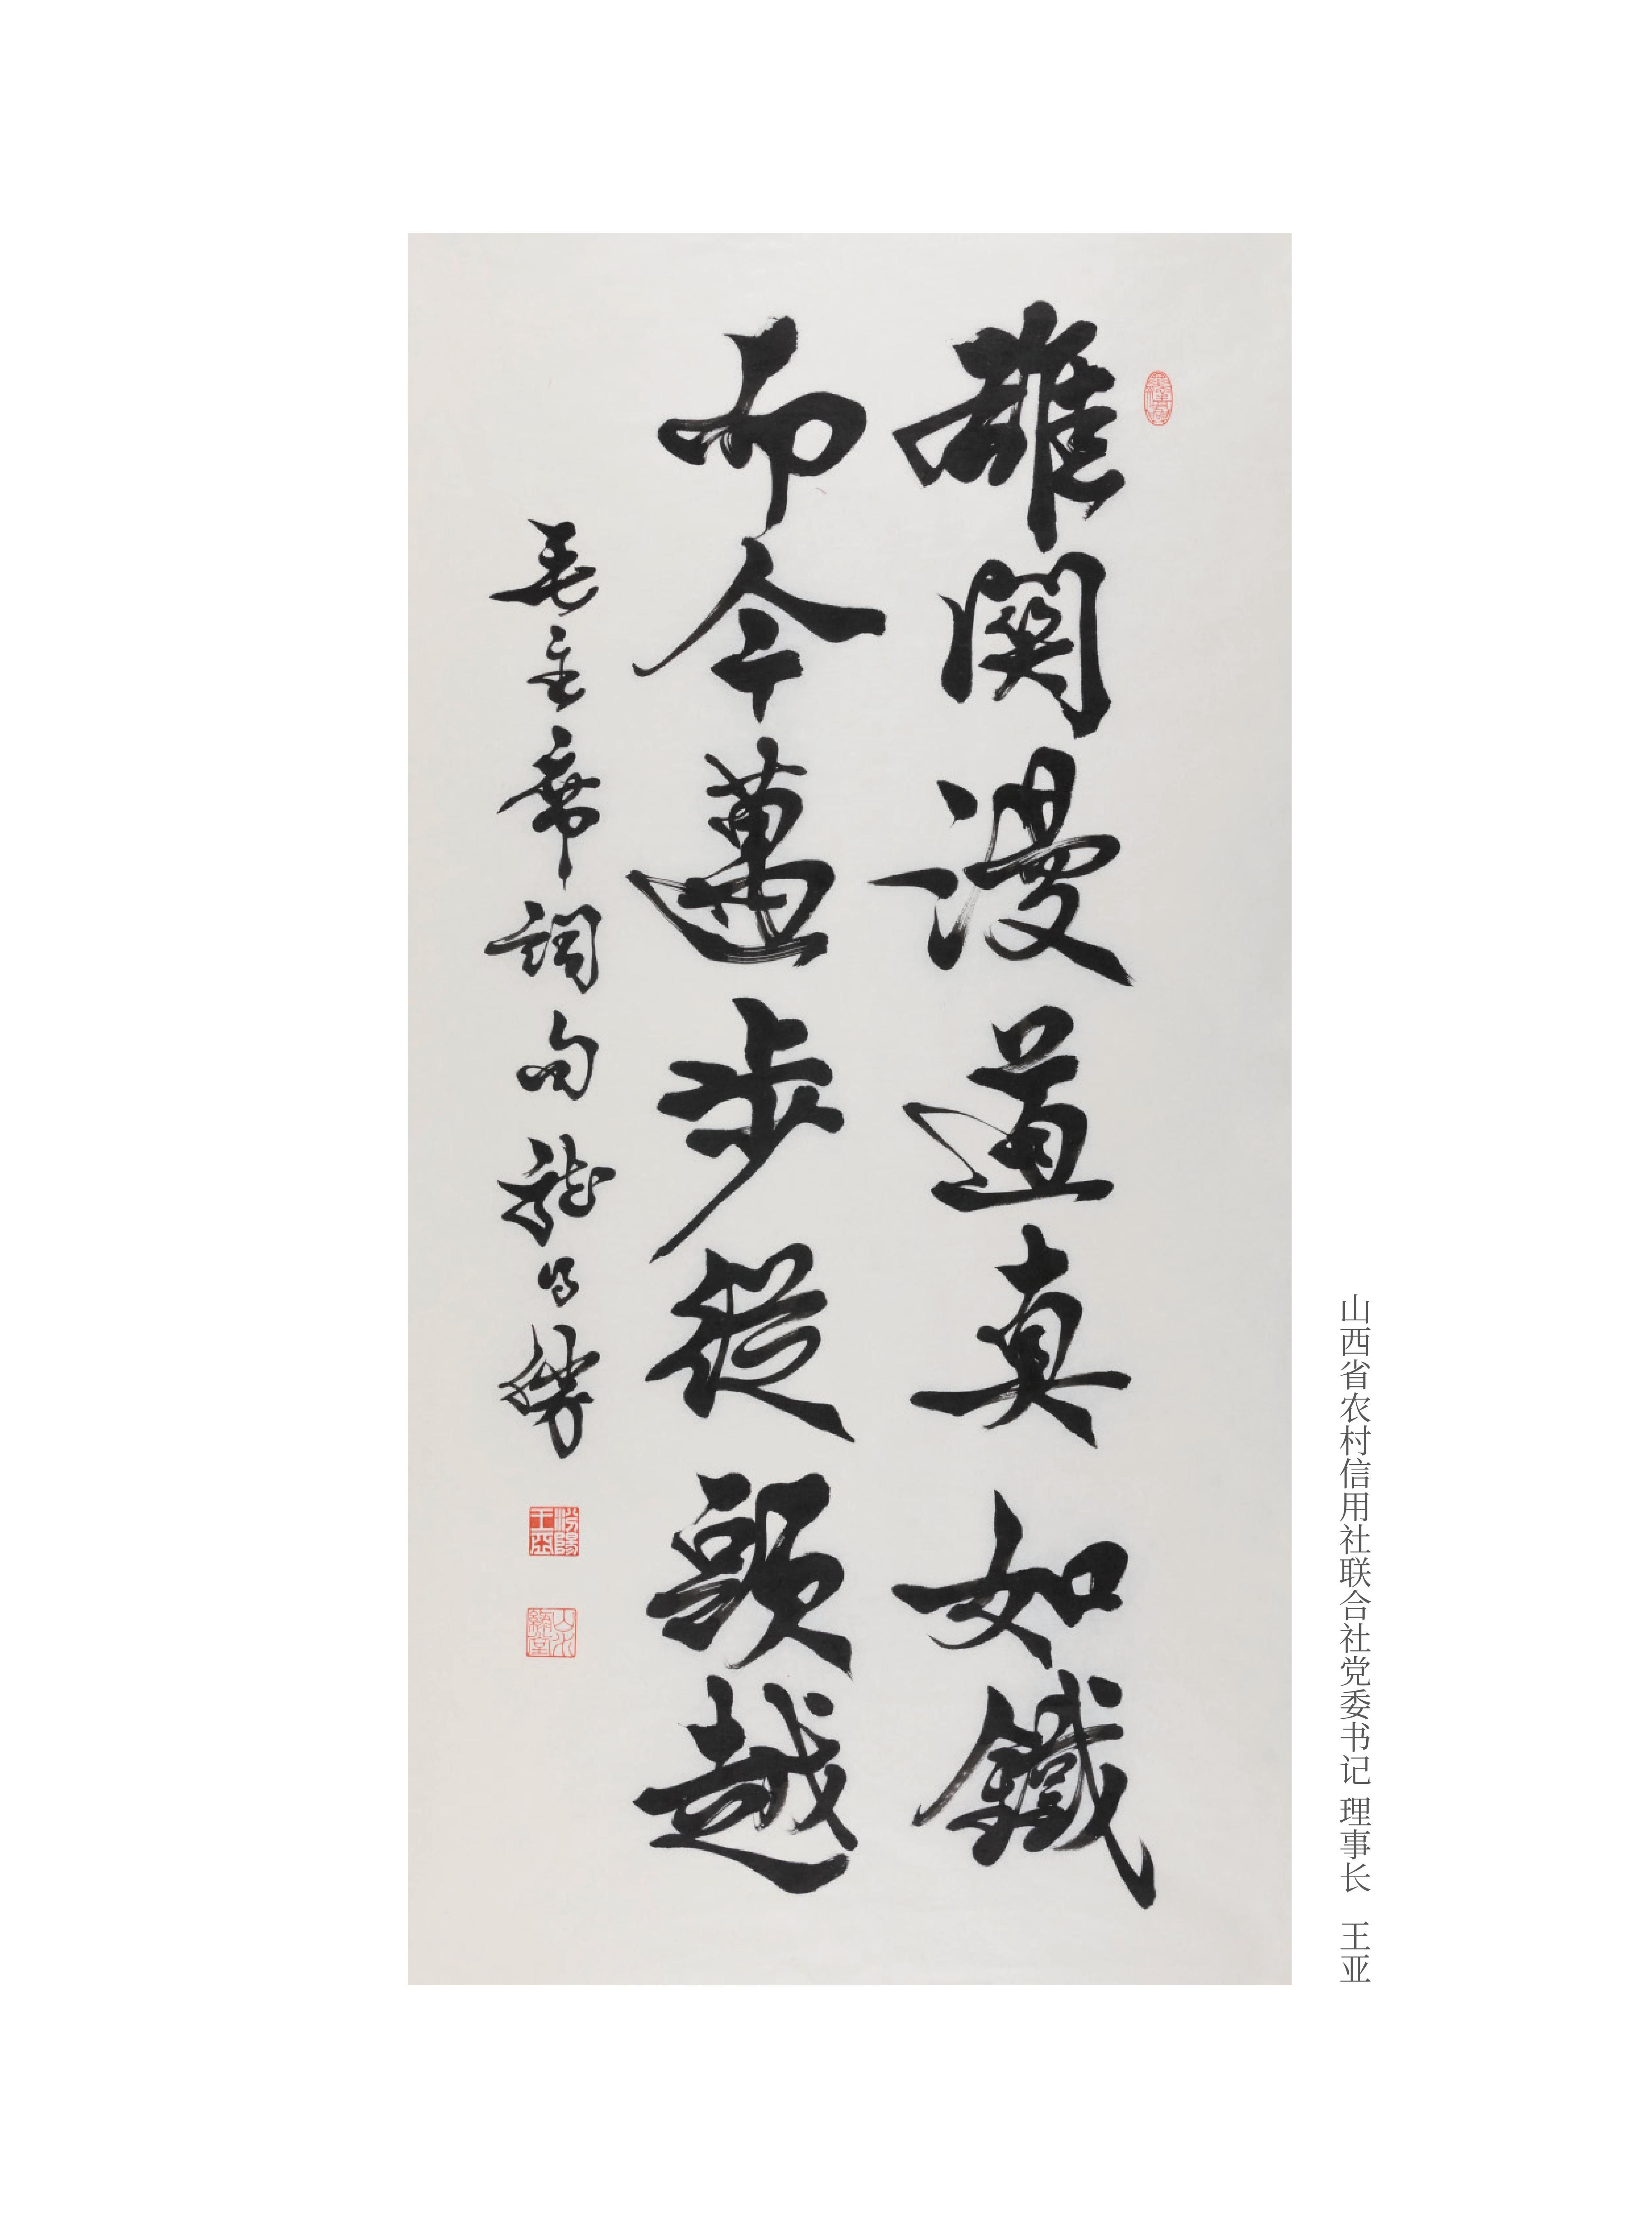 山西省农村信用社联合社党委书记 理事长 王亚
雄關漫道真如鐵
而今邁步從頭越
毛主席詞句
汾陽王亞